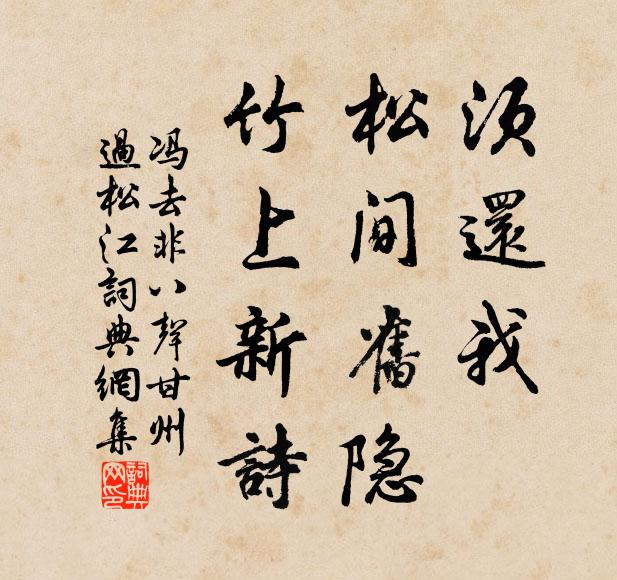 须還我
松間舊隐
竹上新詩
冯去非八聲甘州
過松江詞典網集
詞典网印